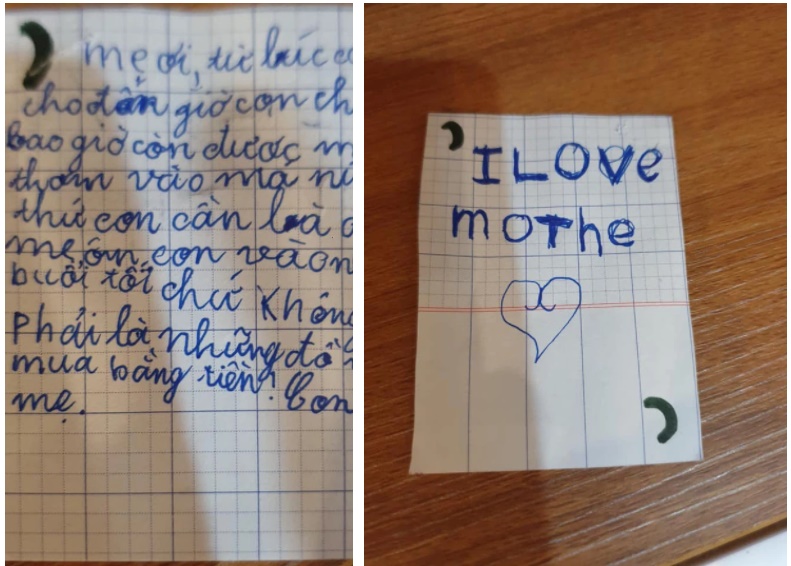 mẹ ơi, từ lúc
cho đến giờ con
bao giờ còn được
thơm vào má
thứ con cần là
mẹ, ôm con vào
buổi tối chứ Khôn
phải là những đồ
mua bằng tiền! Con
mẹ.
I LOVE
mothe